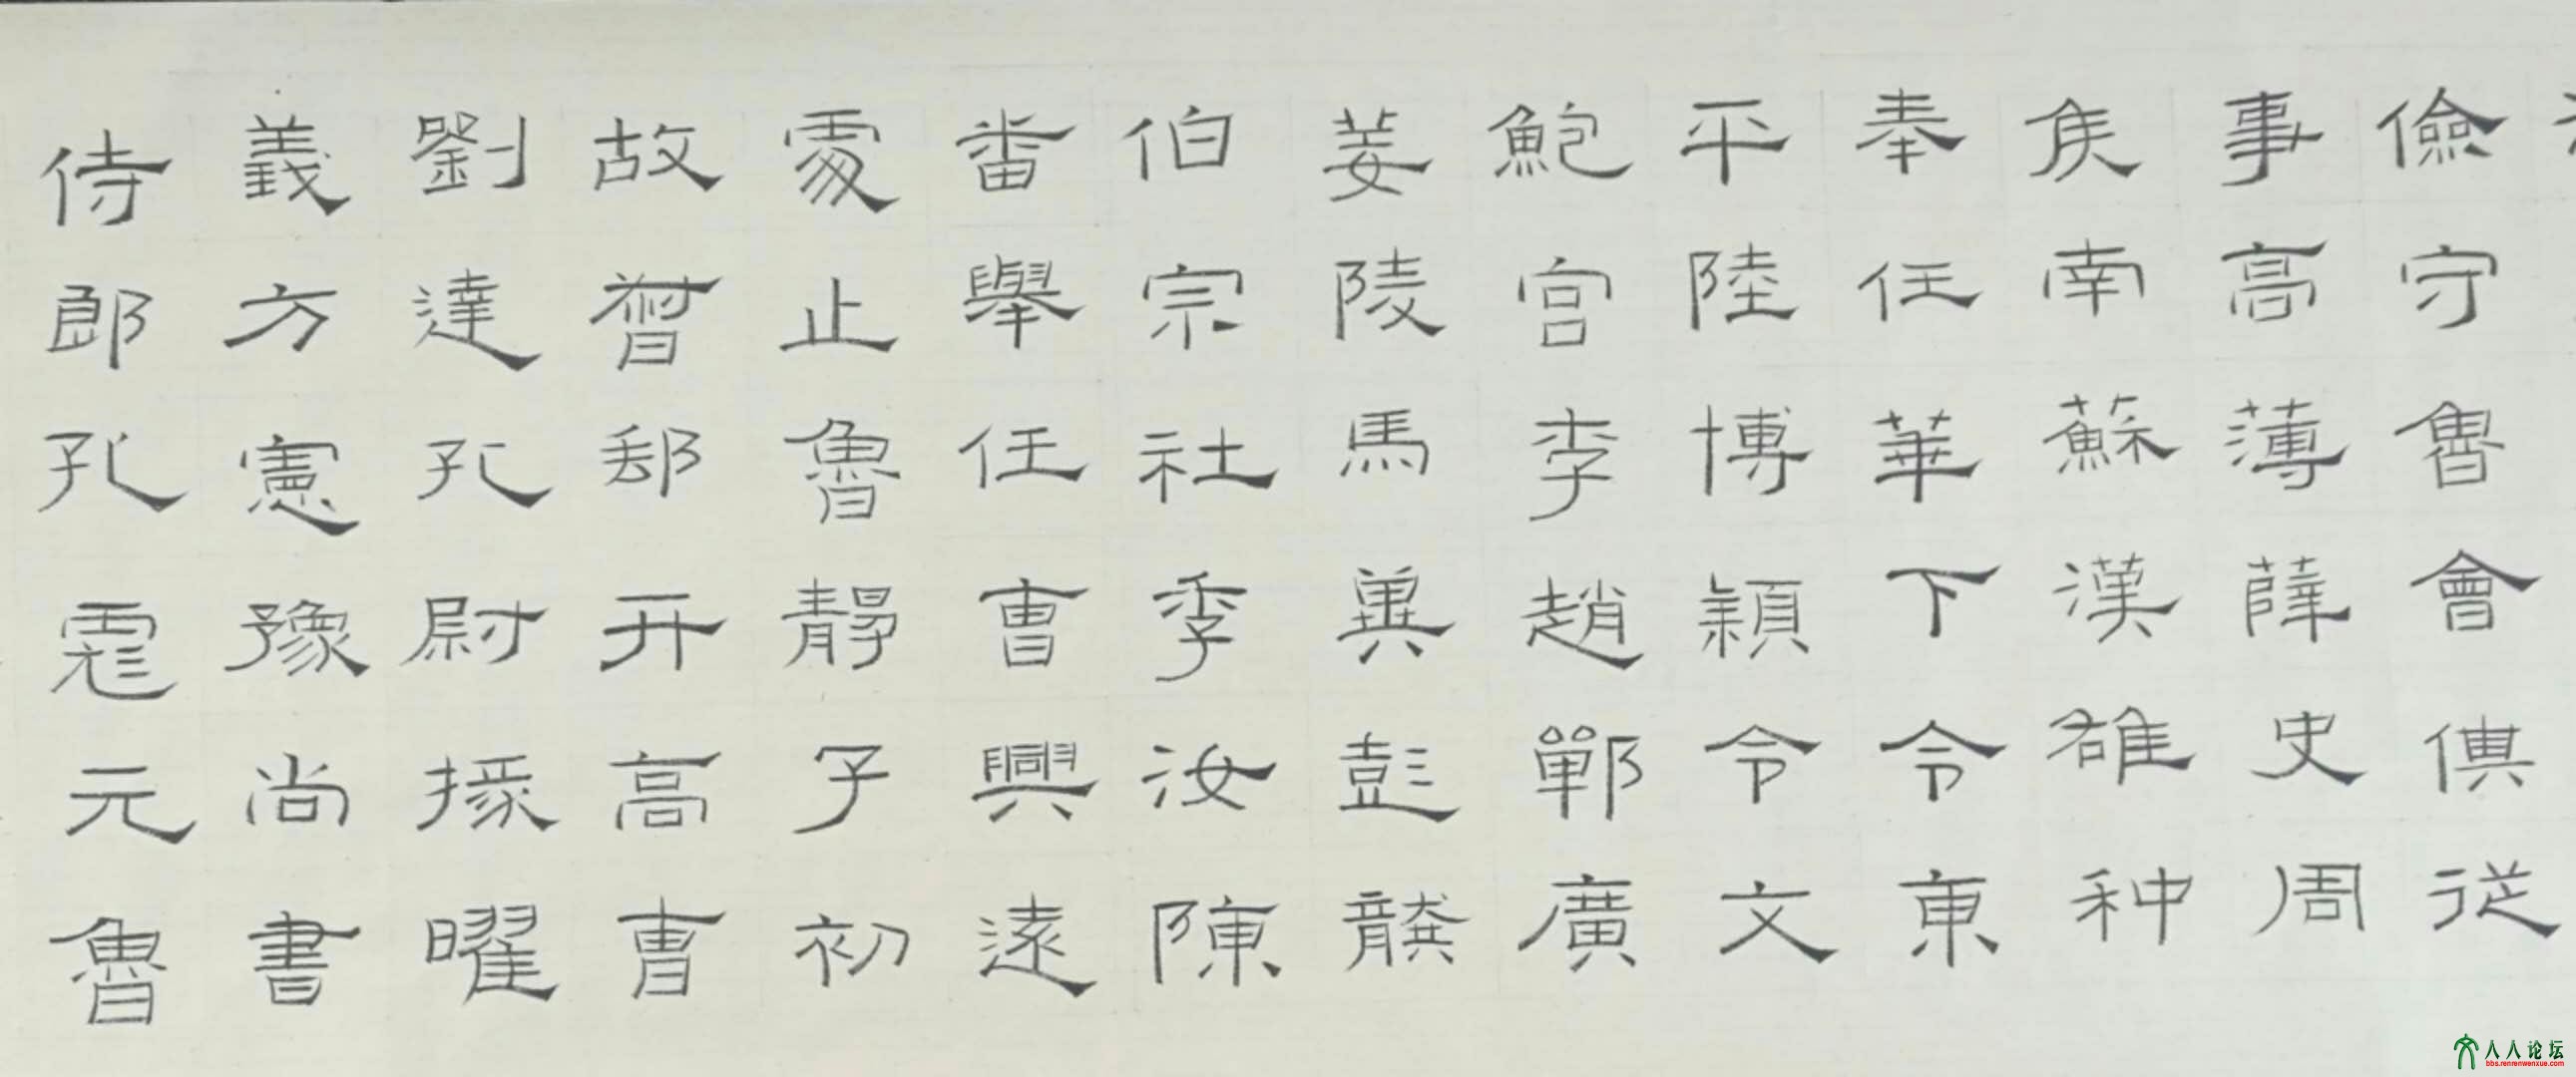 儉守魯會從
事高薄薛史周
侯南蘇漢雒种
奉任華下令東
平陸博穎令文
鮑宮李趙鄲廣
姜陵馬冀彭龔
伯宗社季汝陳
番舉任曹興遠
處止魯靜子初
故督郵开高曹
劉達孔尉掾曜
義方憲豫尚書
侍郎孔彪元魯
人人论坛
bbs.renrenwenxue.com